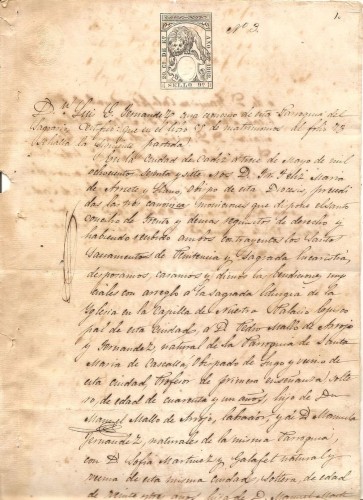 Nº 2.
1.
SELLO 9º
Dn Luis G. Fernandez Cura de esta Parroquia del
Sagrario Certifico que en el libro de matrimonios al folio 23
se halla la siguiente partida
En la Ciudad de Cadiz á trece de Mayo de mil
ochocientos setenta y siete Nos D. D. Fr. Felix Maria
de Arriete y Llano, Obispo de esta Diocesis, precedi
das las tres canonicas moniciones que dispone el Santo
Concilio de Trento y demas requisitos de derecho y
habiendo recibido ambos contrayentes los Santos
Sacramentos de Penitencia y Sagrada Eucaristia,
desposamos, casamos y dimos las bendiciones nup
ciales con arreglo á la Sagrada Liturgia de la
Iglesia en la Capilla de Nuestro Palacio Episco
pal de esta Ciudad, á D. Pedro Mallo de Arrojo
y Fernandez, natural de la Parroquia de Santa
Maria de Obispado de Lugo y vecino de
esta Ciudad, Profesor de primera enseñanza, solte
ro, de edad de cuarenta y un años, hijo de Dn
Manuel Mallo de Arrojo, labrador, y de Dª Manuela
Fernandez, naturales de la misma Parroquia,
con Dª Sofia Martinez y Galafet natural y
vecina de esta misma Ciudad, Soltera, de edad
de veinte años, hija de